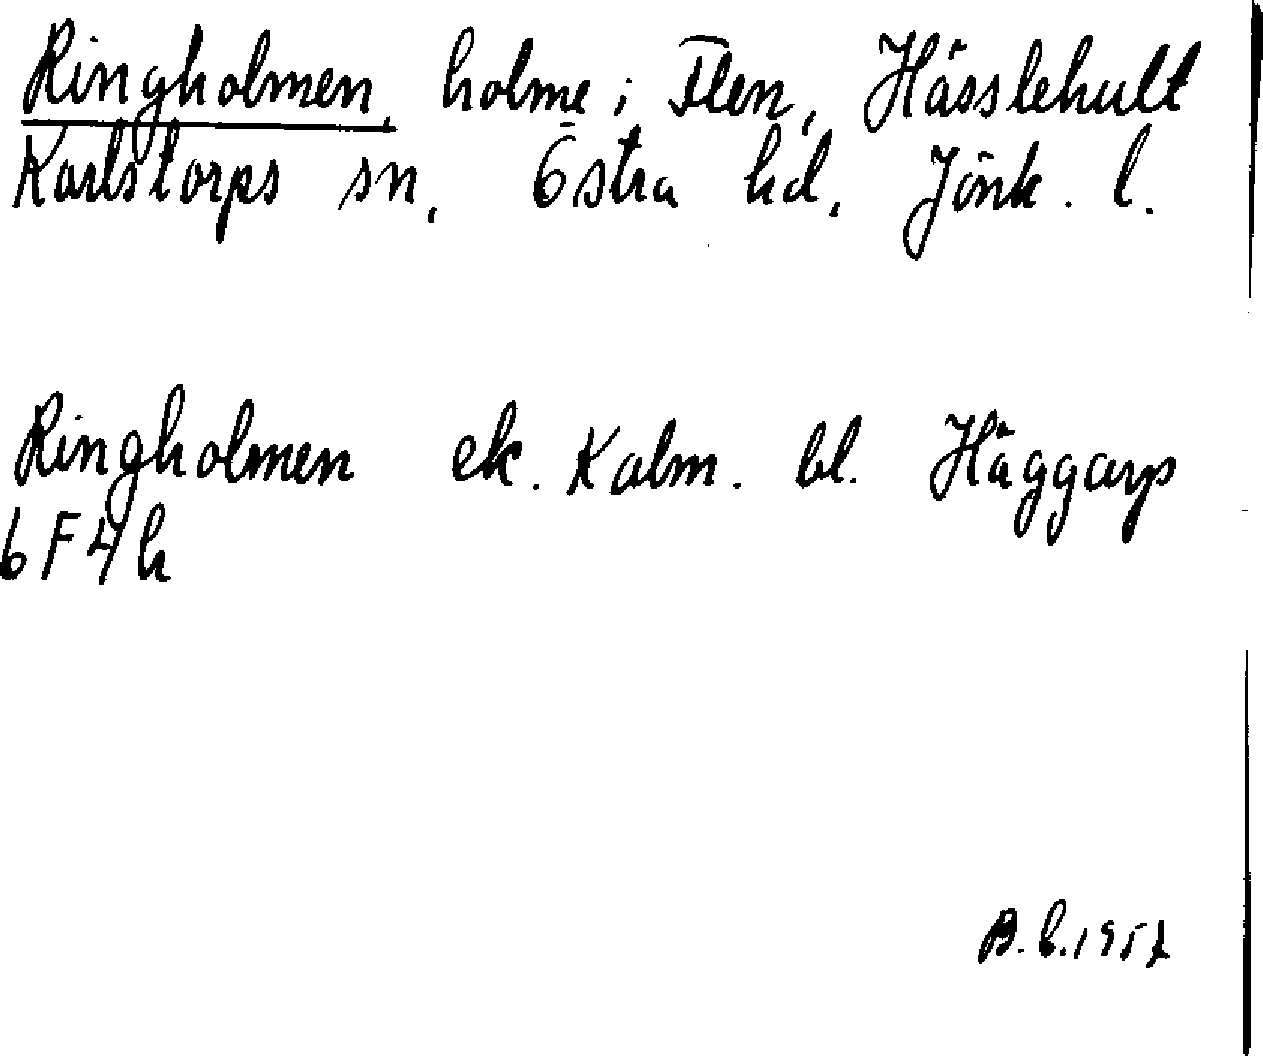 Ringholmen, holme i Flen, Hässlehult
Karlstorps sn, Östra hd, Jönk. l.
Ringholmen ek. Kalm. bl. Häggarp
6 F 4 h